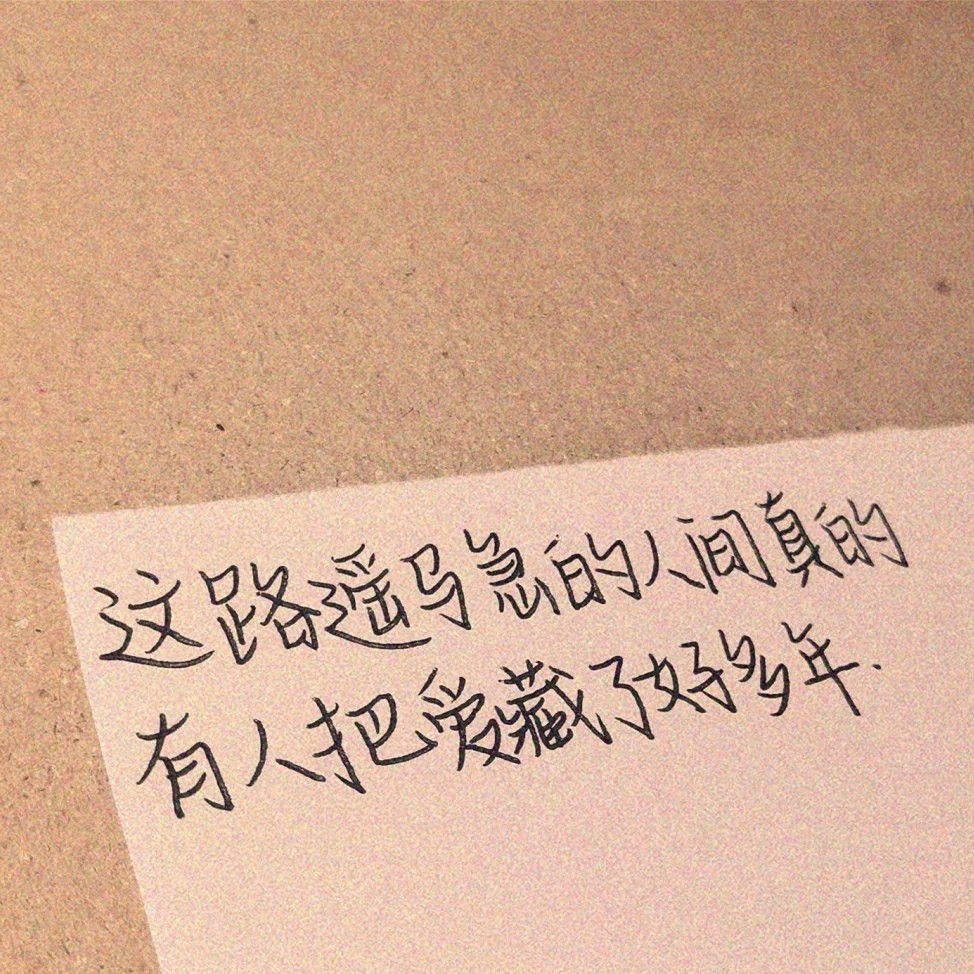 这路遥马急的人间真的
有人把爱藏了好多年.